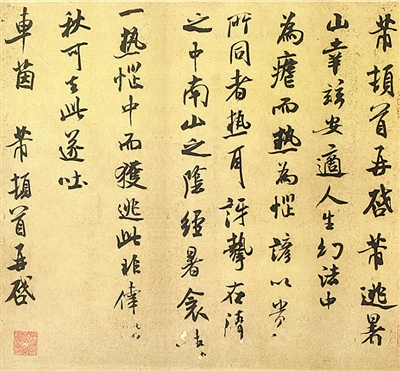 芾頓首再啓芾逃暑
山幸兹安適人生幻法中
為瘧而熱為惱諺以貴
所同者熱耳訝摯在濤
之中南山之陰經暑衾
一熱惱中而獲逃此非倖
秋可去此遂吐
車茵 芾頓首再啓